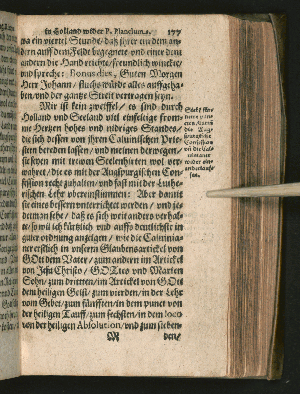 in Holland wider P. Plancium. 177
na ein viertel Stunde/ daß jhrer einer dem an-
dern auff dem Felde begegnete/ und einer dem
andern die Hand reichte/ freundlich winckte/
und spreche: Bonus dies, Guten Morgen
Herr Johann/ flucks würde alles auffgeha-
ben/ und der gantze Streit vertragen seyn.
Mir ist kein zweiffel/ es sind durch
Holland und Seeland viel einfeltige from-
me Hertzen hohes und nidriges Standes/
die sich dessen von jhren Calvinischen Prie-
stern bereden lassen/ und meinen derwegen/
sie seyen mit trewen Seelenhirten wol ver-
wahret/ die es mit der Augspurgischen Con-
fession recht zuhalten/ und fast mit der Luthe-
rischen Lehr übereinstimmen: Aber damit
sie eines bessern unterrichtet werden/ und je-
derman sehe/ daß es sich weit anders verhal-
te/ so wil ich kürtzlich und auffs deutlichste in
guter ordnung anzeigen/ wie die Calvinia-
ner erstlich in unsern Glaubensartickel von
GOtt dem Vater/ zum andern im Artickel
von Jesu Christo/ GOttes und Marien
Sohn/ zum dritten/ im Artickel von GOtt
dem heiligen Geist/ zum vierden/ in der Lehr
vom Gebet/ zum fünfften/ in dem punct von
der heiligen Tauff/ zum sechsten/ in dem loco
von der heiligen Absolution/ und zum sieben-
M den/